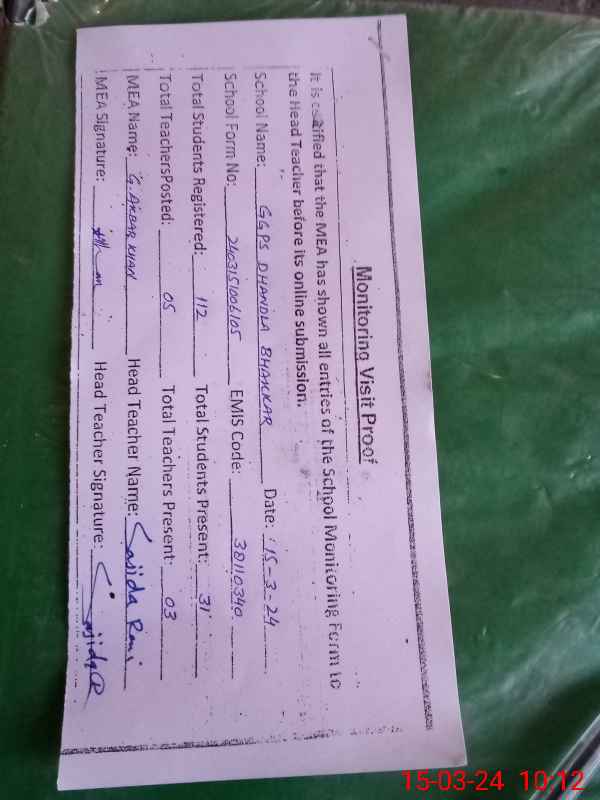 Monitoring Visit Proof
It is certified that the MEA has shown all entries of the School Monitoring Form to
the Head Teacher before its online submission.
School Name: GGPS DHANDLA BHAKKAR Date: 15-3-24
School Form No: 2403151006105 EMIS Code: 38110340
Total Students Registered: 112 Total Students Present: 31
Total TeachersPosted: 05 Total Teachers Present: 03
MEA Name: G. AKBAR KHAN Head Teacher Name: Sajida Rani
MEA Signature: Head Teacher Signature: Sajida R
15-03-24 10:12